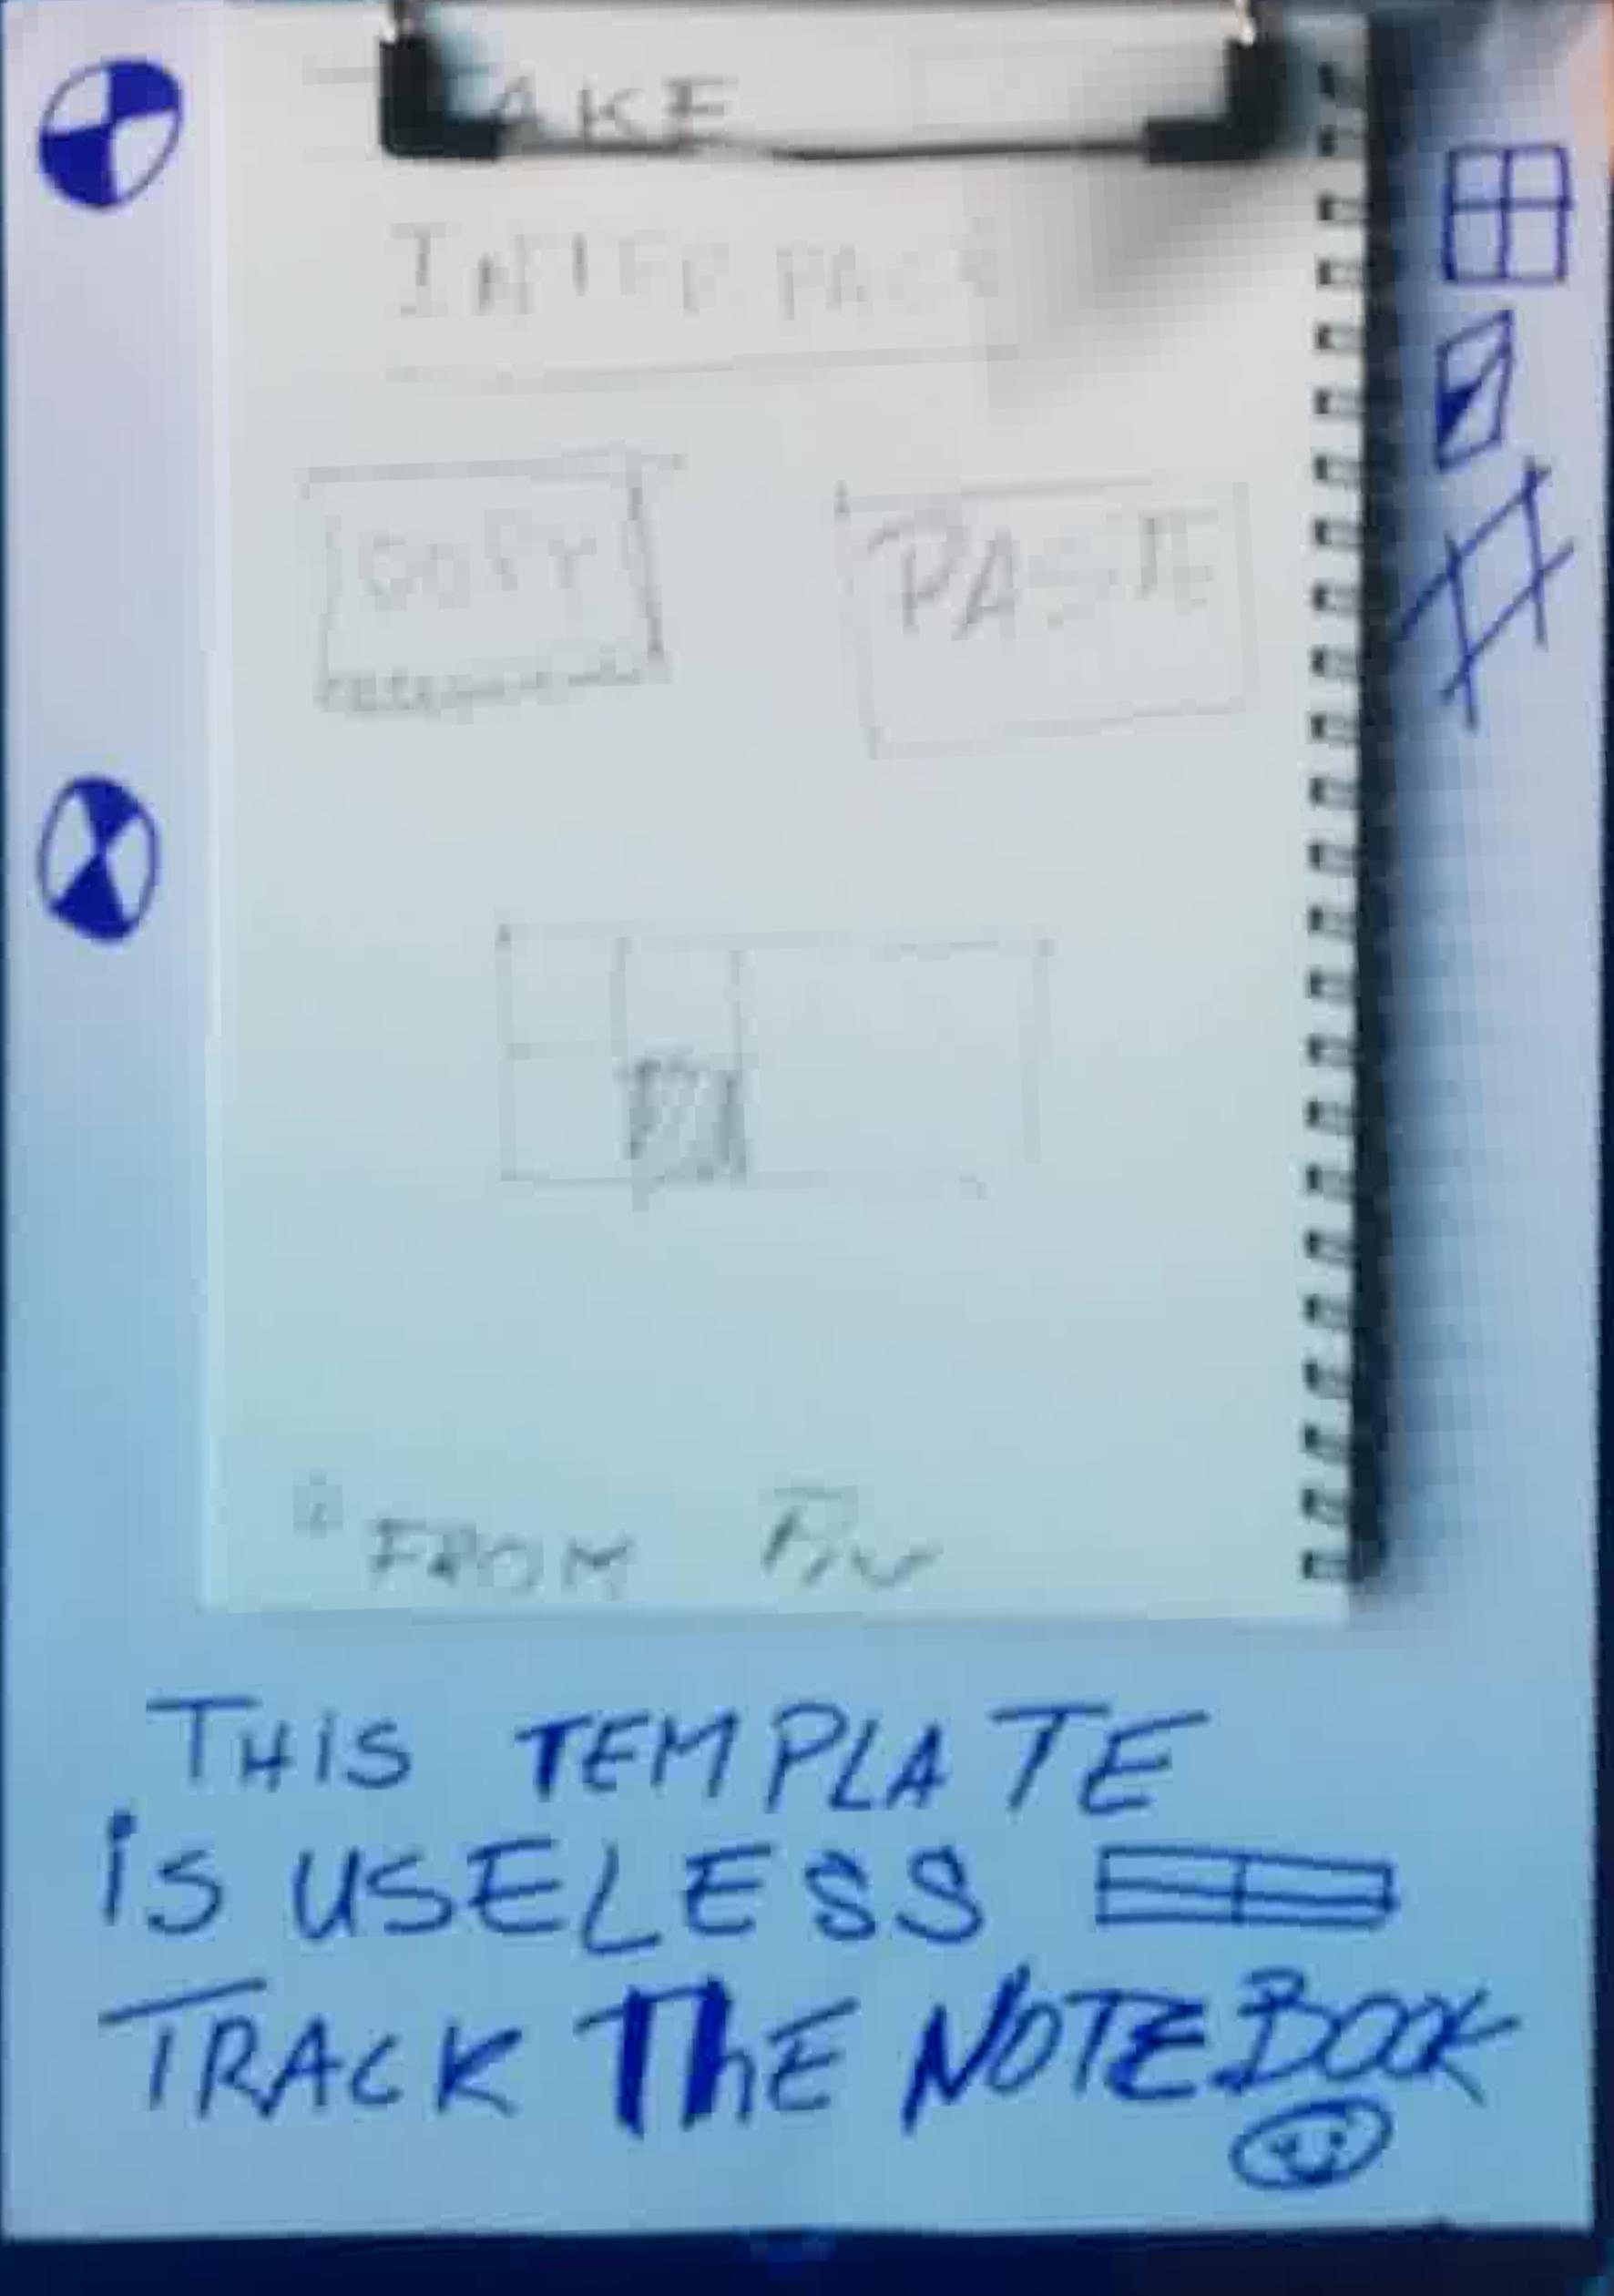 AKE
INTERFACE
COPY PASTE
FROM
THIS TEMPLATE
iS USELESS
TRACK ThE NOTEBOOK